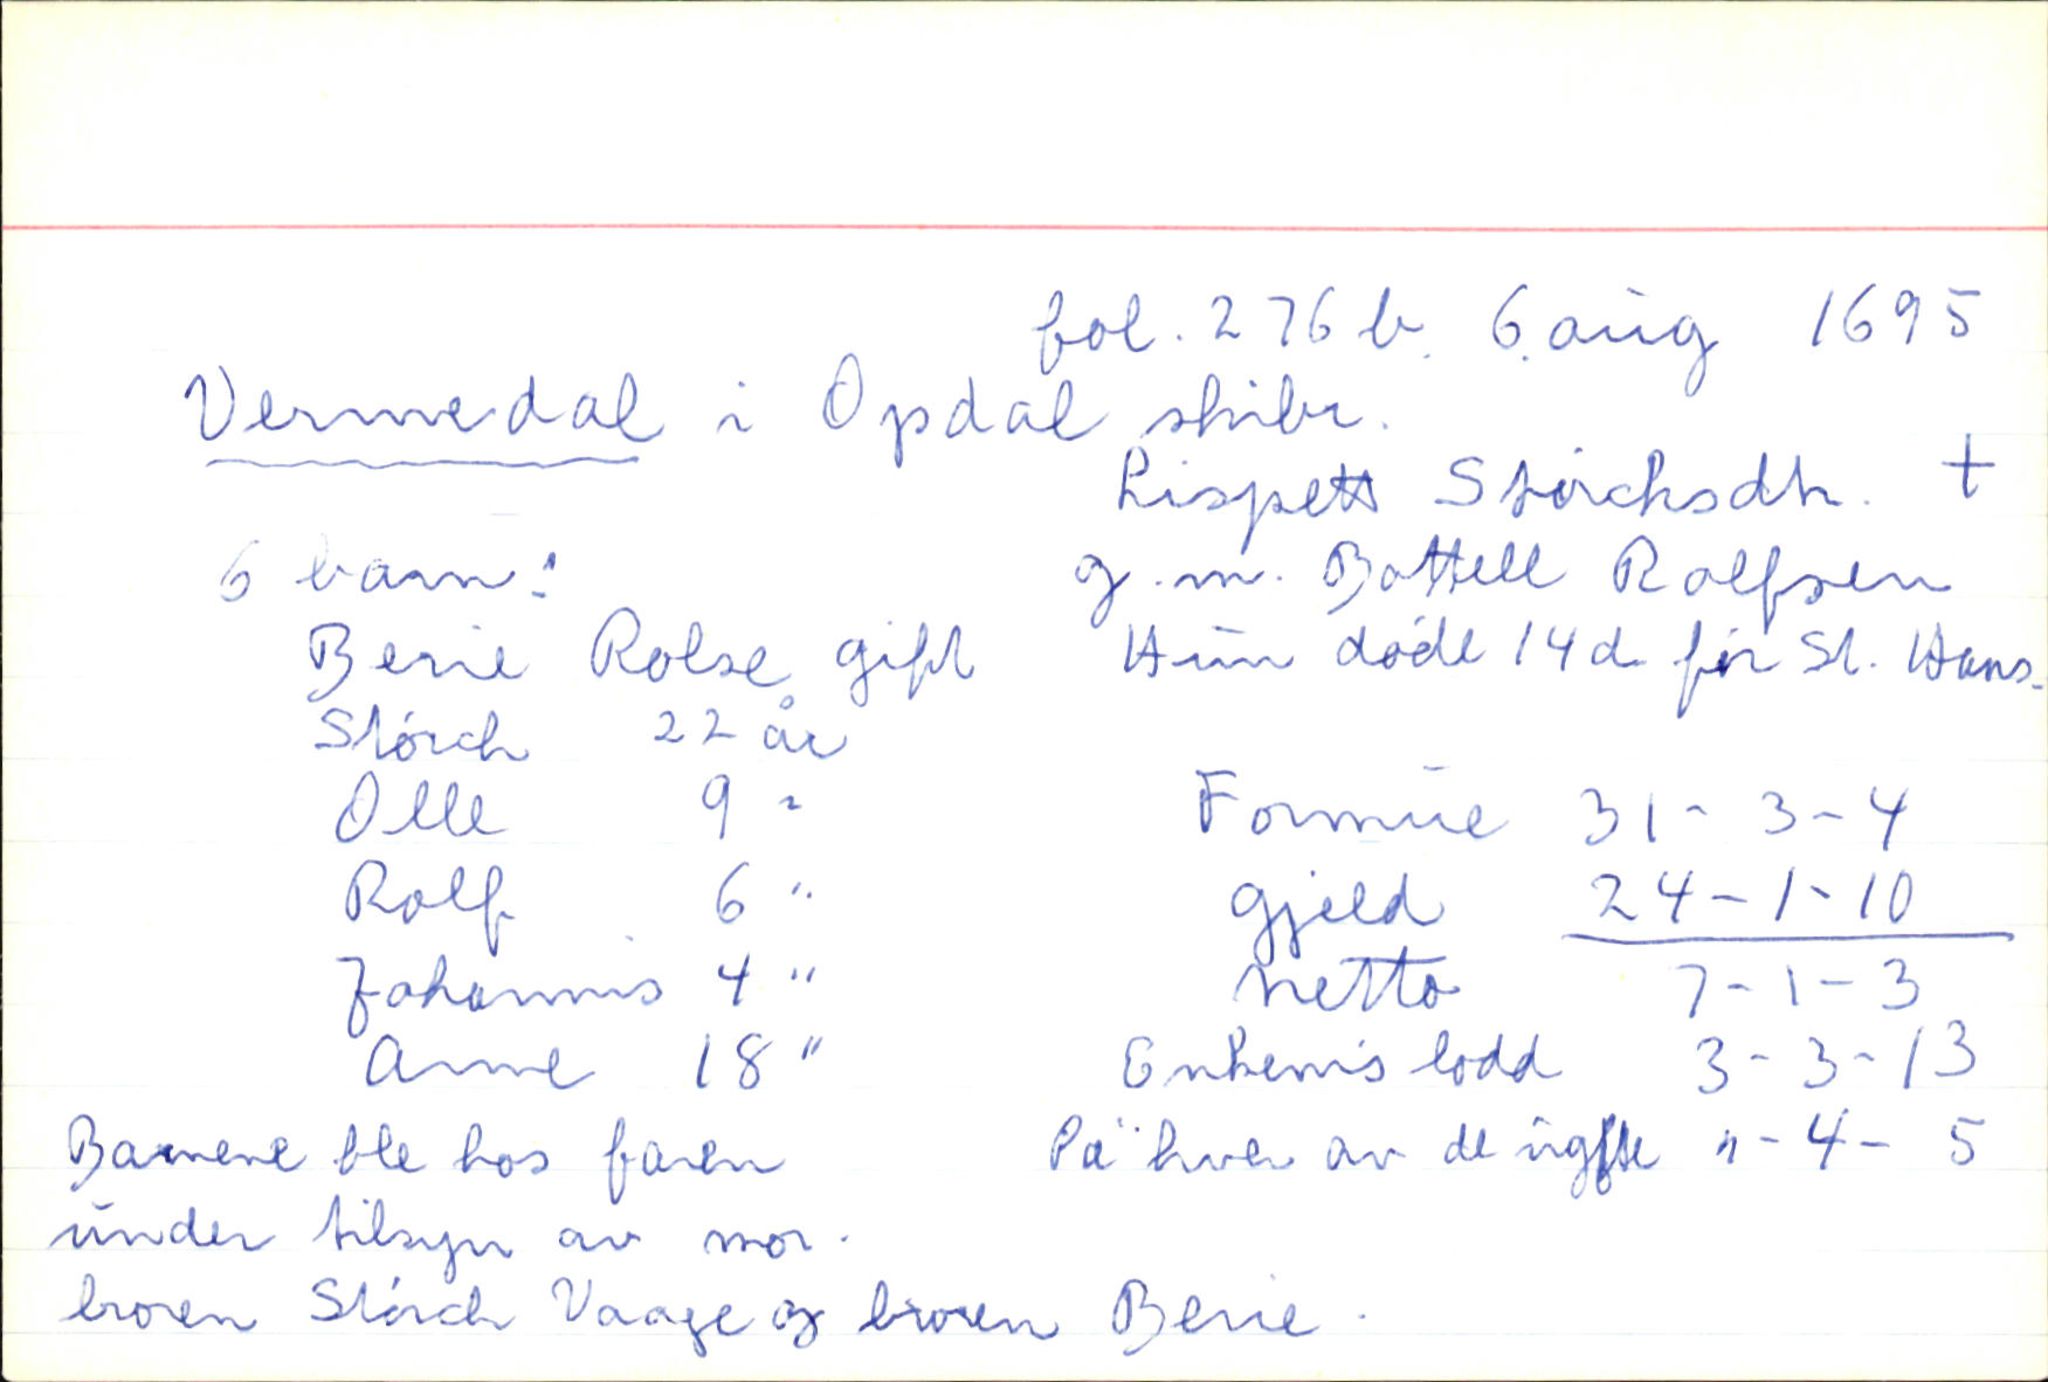 fol. 276 b. 6. aug 1695
Vermedal i Opdal skibr.
Lispett Störchsdtr. +
6 barn: g.m. Bottell Rolfsen
Berie Rolse gift Hun døde 14 d før St. Hans.
Störch 22 år
Olle 9 "
Formue 31-3-4
Rolf 6 "
gjeld 24-1-10
Johannis 4 "
netto 7-1-3
Anne 18 "
Enkem's lodd 3-3-13
Barnene ble hos faren På hver av de ugifte "-4-5
under tilsyn av mor-
broren Störch Vaage og broren Berie.